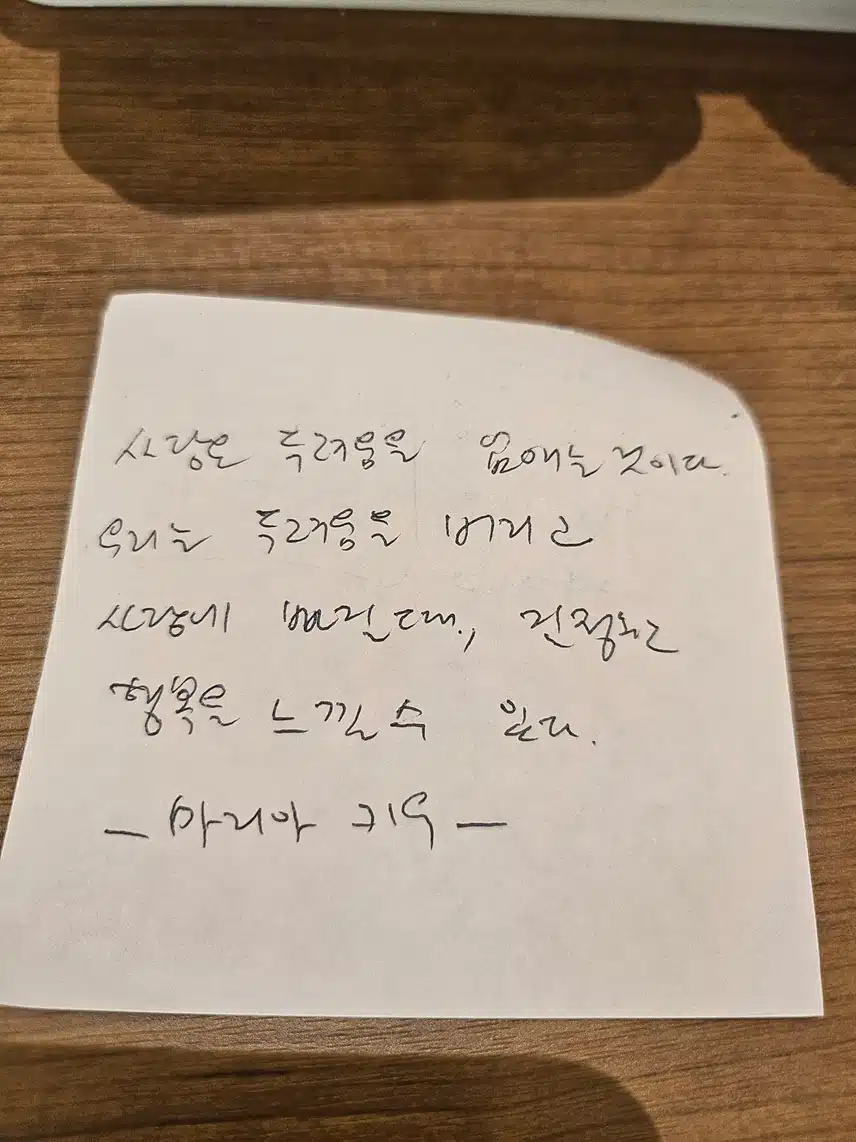 사랑은 두려움을 없애는 것이다.
우리는 두려움을 버리고
사랑에 빠질때, 진정한
행복을 느낄 수 있다.
- 마리아 키우 -